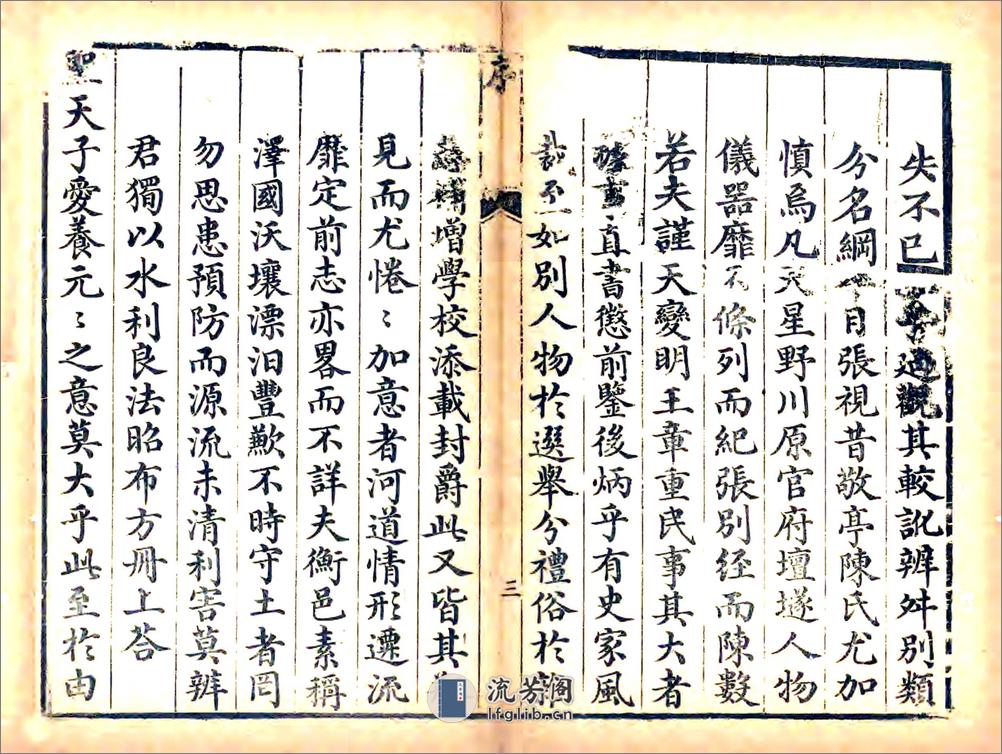 失不已 過觀其較訛辨舛別類
分名綱 目張視昔敬亭陳氏尤加
慎焉凡天星野川原官府壇墜人物
儀器靡不條列而紀張別經而陳數
若夫謹天變明王章重民事其大者
據事直書懲前鑒後炳乎有史家風
至如別人物於選舉分禮俗於
增學校添載封爵此又皆其
見而尤惓〻加意者河道情形遷流
靡定前志亦畧而不詳夫衡邑素稱
澤國沃壤漂汨豐歉不時守土者罔
勿思患預防而源流未清利害莫辨
君獨以水利良法昭布方冊上荅
聖天子愛養元〻之意莫大乎此至於由
序
三
流芳阁
lfglib.cn